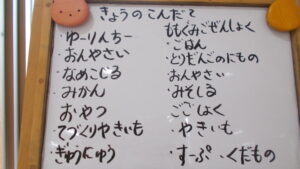 きょうのこんだて
ゆーりんちー
おんやさい
なめこじる
みかん
おやつ
てづくりやきいも
ぎゅうにゅう
ももぐみごぜんしょく
ごはん
とりだんごのにもの
おんやさい
みそしる
ごごしょく
やきいも
すーぷ くだもの